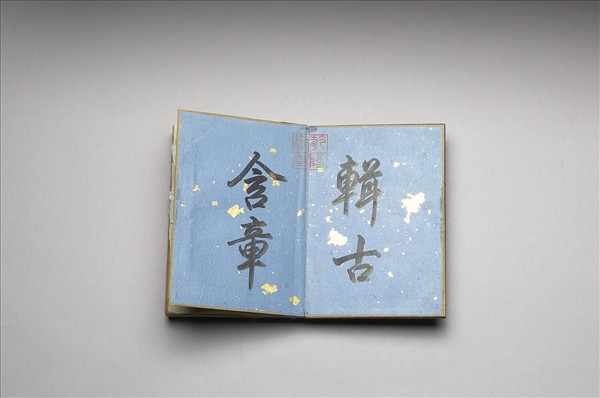 輯古
含章